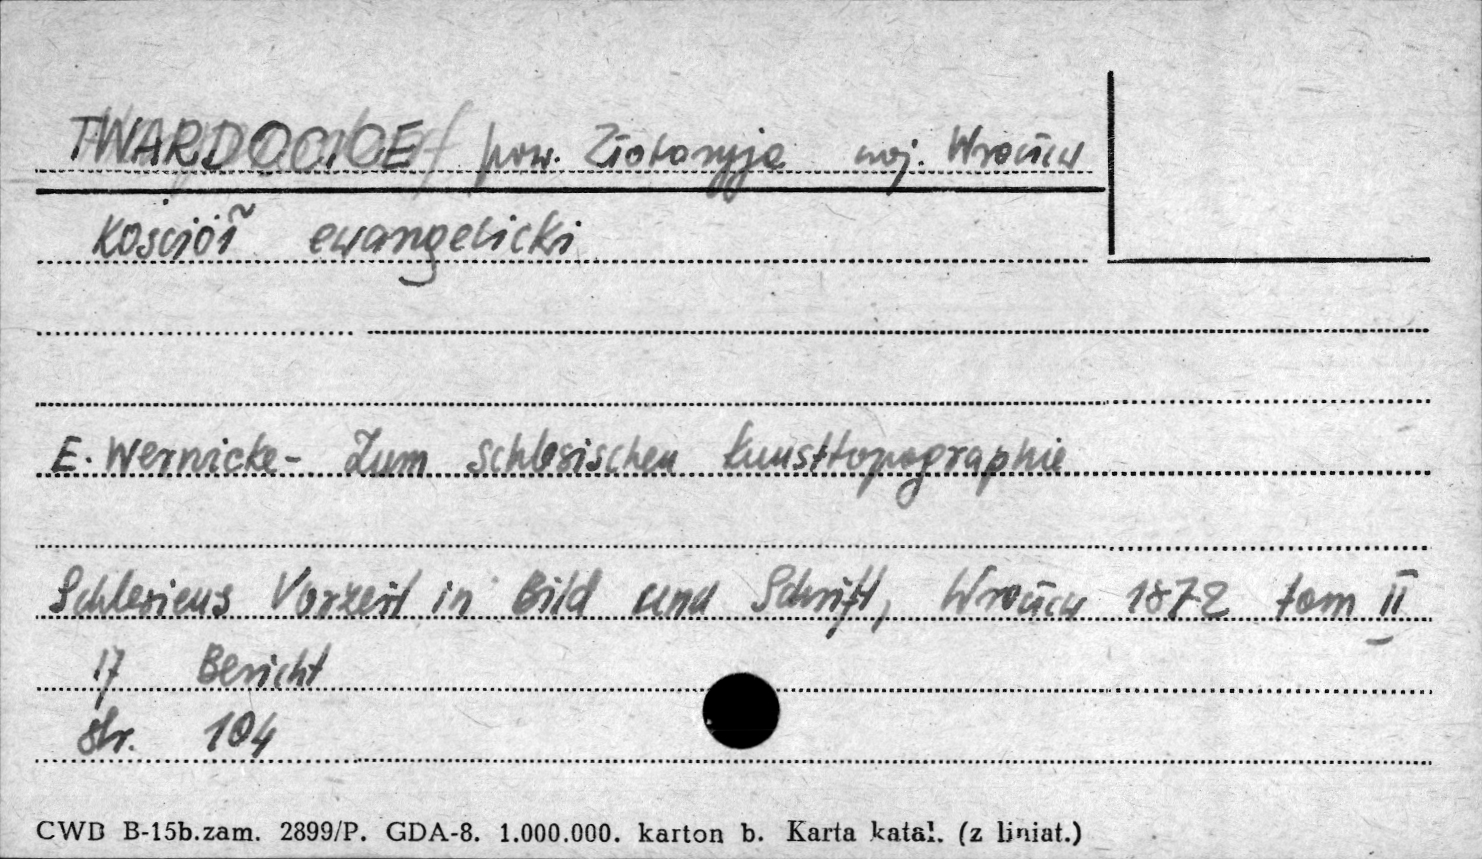 TWARDOCICE pow. Złotoryja woj. Wrocław
Kościół ewangelicki
E. Wernicke - Zum Schlesischen Kunsttopographie
Schlesiens Vorzeit in Bild und Schrift, Wrocław 1872 tom II
17 Bericht
str. 104
CWD B-15b.zam. 2899/P. GDA-8. 1.000.000. karton b. Karta katal. (z liniat.)